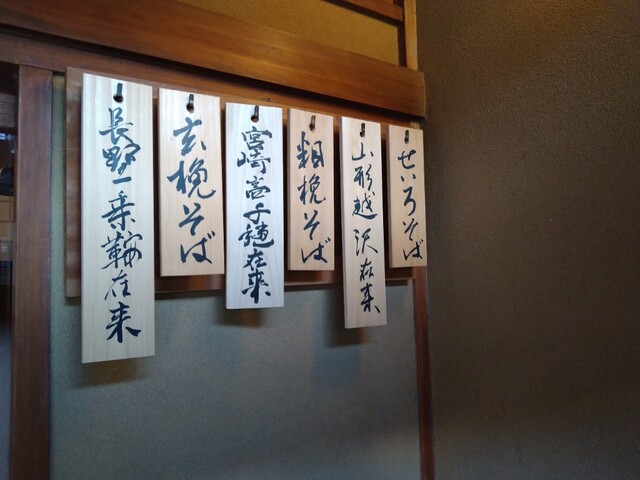 せいろそば
山形越沢在来
粗挽そば
宮崎高千穂在来
玄挽そば
長野一乗鞍在来